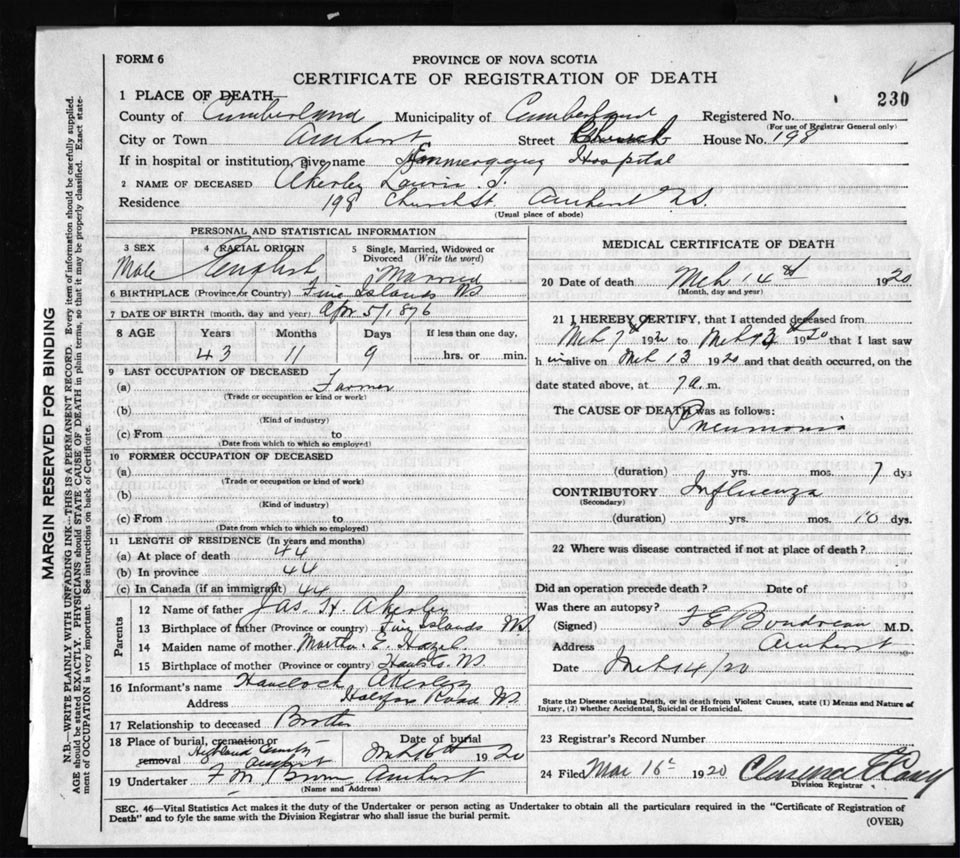 FORM 6
PROVINCE OF NOVA SCOTIA
CERTIFICATE OF REGISTRATION OF DEATH
230
1 PLACE OF DEATH
County of Cumberland Municipality of Cumberland Registered No.
(For use of Registrar General only)
City or Town Amherst Street Church House No. 198
If in hospital or institution, give name Hospital
2 NAME OF DECEASED Akerley J.
Residence 198 Church St. Amherst N.S.
(Usual place of abode)
PERSONAL AND STATISTICAL INFORMATION
3 SEX 4 RACIAL ORIGIN 5 Single, Married, Widowed or Divorced (Write the word)
Male English Married
6 BIRTHPLACE (Province or Country) Five Islands NS
7 DATE OF BIRTH (month, day and year) Apr 5/1876
8 AGE Years Months Days If less than one day,
43 11 9 hrs. or min.
9 LAST OCCUPATION OF DECEASED
(a) Farmer
(Trade or occupation or kind or work)
(b)
(Kind of industry)
(c) From to
(Date from which to which so employed)
10 FORMER OCCUPATION OF DECEASED
(a)
(Trade or occupation or kind of work)
(b)
(Kind of industry)
(c) From to
(Date from which to which so employed)
11 LENGTH OF RESIDENCE (In years and months)
(a) At place of death 44
(b) In province 44
(c) In Canada (if an immigrant) 44
Parents
12 Name of father Jas. H. Akerley
13 Birthplace of father (Province or country) Five Islands NS
14 Maiden name of mother Martha E.
15 Birthplace of mother (Province or country) Hants Co. NS
16 Informant's name Havelock Akerley
Address Halifax Road NS
17 Relationship to deceased Brother
18 Place of burial, cremation or removal Highland Amherst Date of burial Mch 16th 1920
19 Undertaker F M Brown Amherst
(Name and Address)
MEDICAL CERTIFICATE OF DEATH
20 Date of death Mch 14th 1920
(Month, day and year)
21 I HEREBY CERTIFY, that I attended deceased from
Mch 7th 1920 to Mch 13th 1920 that I last saw
him alive on Mch 13 1920 and that death occurred, on the
date stated above, at 7 a. m.
The CAUSE OF DEATH was as follows:
Pneumonia
(duration) yrs. mos. 7 dys
CONTRIBUTORY Influenza
(Secondary)
(duration) yrs. mos. 10 dys.
22 Where was disease contracted if not at place of death?
Did an operation precede death? Date of
Was there an autopsy?
(Signed) F E Boudreau M.D.
Address Amherst
Date Mch 14/20
State the Disease causing Death, or in death from Violent Causes, state (1) Means and Nature of
Injury, (2) whether Accidental, Suicidal or Homicidal.
23 Registrar's Record Number
24 Filed Mar 16th 1920 Clarence
Division Registrar
SEC. 46—Vital Statistics Act makes it the duty of the Undertaker or person acting as Undertaker to obtain all the particulars required in the "Certificate of Registration of
Death" and to fyle the same with the Division Registrar who shall issue the burial permit.
(OVER)
MARGIN RESERVED FOR BINDING
N.B.—WRITE PLAINLY WITH UNFADING INK—THIS IS A PERMANENT RECORD. Every item of information should be carefully supplied.
AGE should be stated EXACTLY. PHYSICIANS should STATE CAUSE OF DEATH in plain terms, so that it may be properly classified. Exact state-
ment of OCCUPATION is very important. See instructions on back of Certificate.